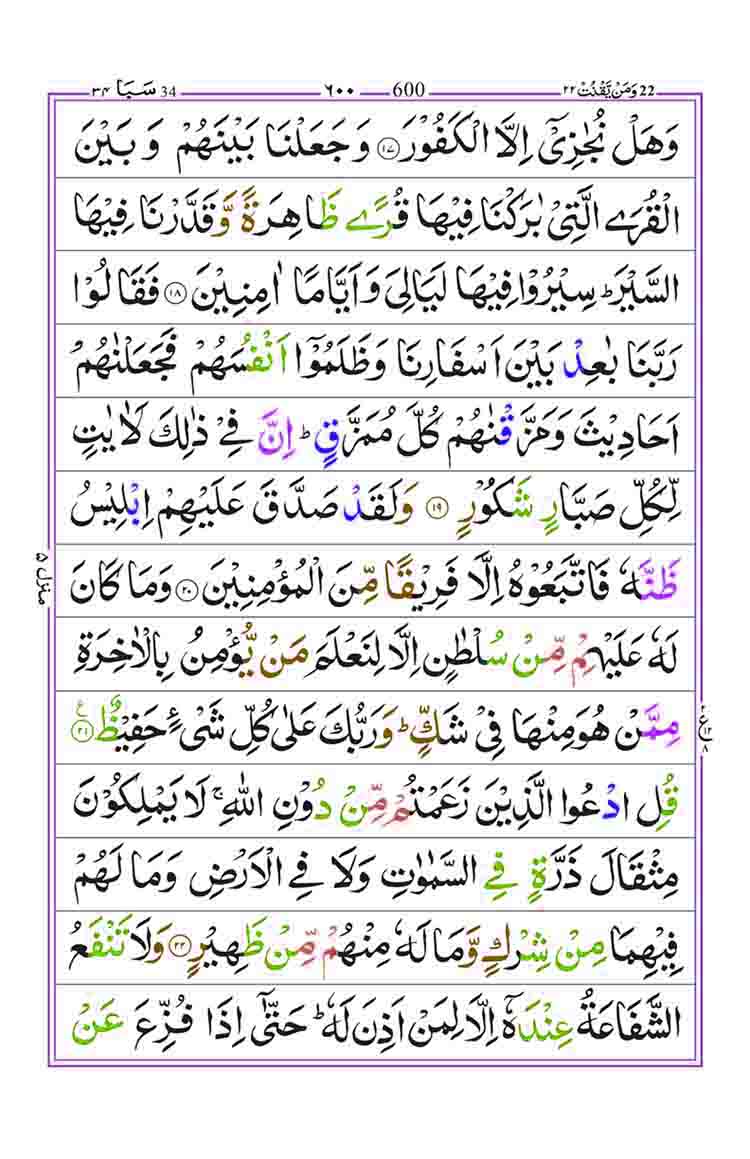 22 وَمَنْ يَّقْنُتْ ۲۲ 600 ۶۰۰ 34 سَبَا ۳۴
وَهَلْ نُجٰزِیْۤ اِلَّا الْكَفُوْرَ ﴿۱۷﴾ وَ جَعَلْنَا بَیْنَهُمْ وَ بَیْنَ
الْقُرَی الَّتِیْ بٰرَكْنَا فِیْهَا قُرًی ظَاهِرَةً وَّ قَدَّرْنَا فِیْهَا
السَّیْرَ ؕ سِیْرُوْا فِیْهَا لَیَالِیَ وَ اَیَّامًا اٰمِنِیْنَ ﴿۱۸﴾ فَقَالُوْا
رَبَّنَا بٰعِدْ بَیْنَ اَسْفَارِنَا وَ ظَلَمُوْۤا اَنْفُسَهُمْ فَجَعَلْنٰهُمْ
اَحَادِیْثَ وَ مَزَّقْنٰهُمْ كُلَّ مُمَزَّقٍ ؕ اِنَّ فِیْ ذٰلِكَ لَاٰیٰتٍ
لِّكُلِّ صَبَّارٍ شَكُوْرٍ ﴿۱۹﴾ وَ لَقَدْ صَدَّقَ عَلَیْهِمْ اِبْلِیْسُ
ظَنَّهٗ فَاتَّبَعُوْهُ اِلَّا فَرِیْقًا مِّنَ الْمُؤْمِنِیْنَ ﴿۲۰﴾ وَ مَا كَانَ
منزل ۵
لَهٗ عَلَیْهِمْ مِّنْ سُلْطٰنٍ اِلَّا لِنَعْلَمَ مَنْ یُّؤْمِنُ بِالْاٰخِرَةِ
مِمَّنْ هُوَ مِنْهَا فِیْ شَكٍّ ؕ وَ رَبُّكَ عَلٰی كُلِّ شَیْءٍ حَفِیْظٌ ﴿۲۱﴾ ع
قُلِ ادْعُوا الَّذِیْنَ زَعَمْتُمْ مِّنْ دُوْنِ اللّٰهِ ۚ لَا یَمْلِكُوْنَ
مِثْقَالَ ذَرَّةٍ فِی السَّمٰوٰتِ وَ لَا فِی الْاَرْضِ وَ مَا لَهُمْ
فِیْهِمَا مِنْ شِرْكٍ وَّ مَا لَهٗ مِنْهُمْ مِّنْ ظَهِیْرٍ ﴿۲۲﴾ وَ لَا تَنْفَعُ
الشَّفَاعَةُ عِنْدَهٗۤ اِلَّا لِمَنْ اَذِنَ لَهٗ ؕ حَتّٰۤی اِذَا فُزِّعَ عَنْ